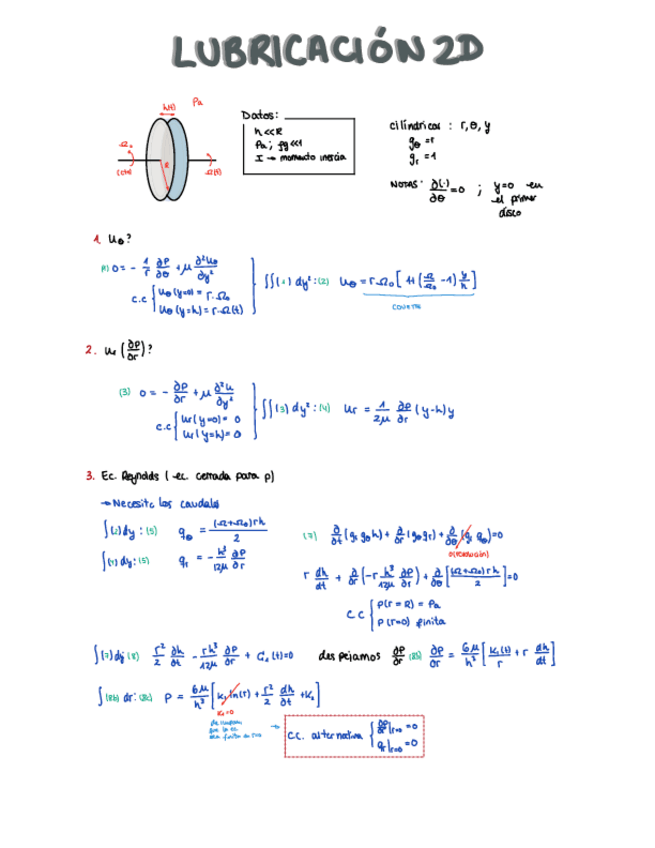 LUBRICACIÓN 2D
h(t)
Pa
Ω₀
(cte)
R
Ω(t)
Datos:
h << R
Pa ; ρg <<1
I → momento inercia
cilíndricas : r, θ, y
gθ = r
gr = 1
NOTAS: ∂(·)/∂θ = 0 ; y=0 en
el primer
disco
1. Uθ?
0 = - 1/r ∂P/∂θ + μ ∂²uθ/∂y²
c.c { Uθ (y=0) = r·Ω₀
Uθ (y=h) = r·Ω(t)
∫∫(1) dy² : (2) Uθ = r·Ω₀ [ 1+ (Ω/Ω₀ -1) y/h ]
COUETTE
2. ur (∂P/∂r)?
(3) 0 = - ∂P/∂r + μ ∂²u/∂y²
c.c { Ur (y=0) = 0
Ur (y=h) = 0
∫∫(3) dy² : (4) Ur = 1/2μ ∂P/∂r (y-h) y
3. Ec. Reynolds ( ec. cerrada para p)
→ Necesito los caudales
∫(2)dy : (5) qθ = (Ω+Ω₀) r h / 2
qr = - h³/12μ ∂P/∂r
(7) ∂/∂t (gr gθ h) + ∂/∂r (gθ qr) + ∂/∂θ (gr qθ) = 0
r dh/dt + ∂/∂r (-r h³/12μ ∂P/∂r) + ∂/∂θ [(Ω+Ω₀) r h / 2] = 0
C C { P(r = R) = Pa
P (r=0) finita
r²/2 ∂h/∂t - r h³/12μ ∂P/∂r + C₁ (t) = 0
despejamos ∂P/∂r (8b) ∂P/∂r = 6μ/h³ [ K₁(t)/r + r dh/dt ]
∫(8b) dr : (8c) P = 6μ/h³ [ K₁ ln(r) + r²/2 dh/∂t + K₂ ]
K₁=0
que la ec.
sea finita en r=0
C.C. alternativa { ∂P/∂r |r=0 = 0
qr |r=0 = 0